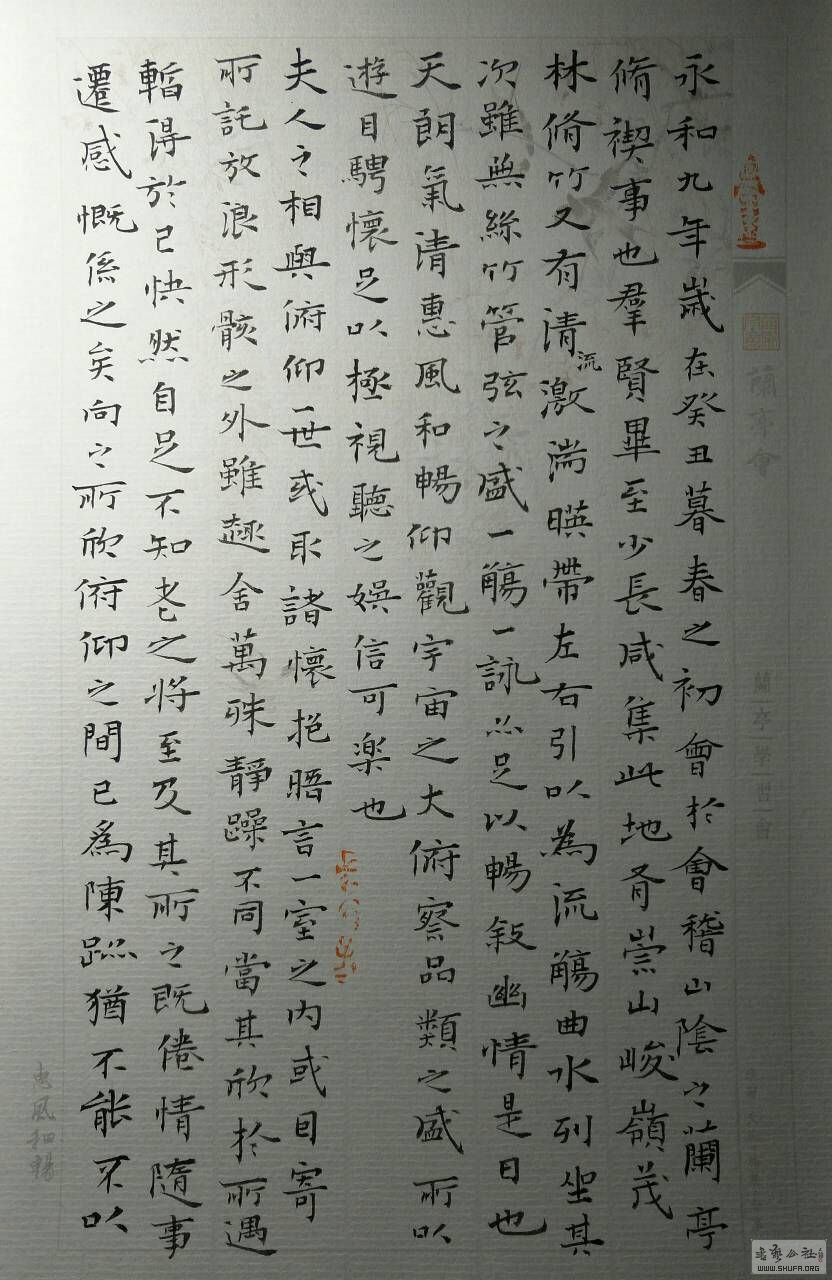 蘭亭會
永和九年歲在癸丑暮春之初會於會稽山陰之蘭亭
脩禊事也羣賢畢至少長咸集此地有崇山峻嶺茂
林脩竹又有清流激湍暎帶左右引以為流觴曲水列坐其
次雖無絲竹管弦之盛一觴一詠亦足以暢敘幽情是日也
天朗氣清惠風和暢仰觀宇宙之大俯察品類之盛所以
遊目騁懷足以極視聽之娛信可楽也
夫人之相與俯仰一世或取諸懷抱晤言一室之內或因寄
所託放浪形骸之外雖趣舍萬殊靜躁不同當其欣於所遇
暫得於己快然自足不知老之將至及其所之既倦情隨事
遷感慨係之矣向之所欣俯仰之間已為陳跡猶不能不以
惠風和暢
书艺公社
WWW.SHUFA.ORG